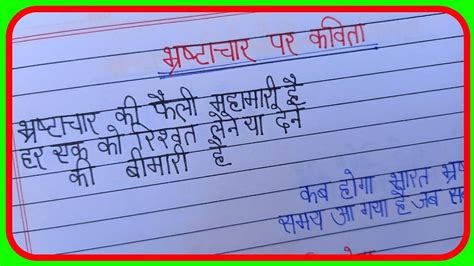 भ्रष्टाचार पर कविता
भ्रष्टाचार की फैली महामारी है
हर एक को रिश्वत लेने या देने
की बीमारी है
कब होगा भारत भ्रष
समय आ गया है जब स